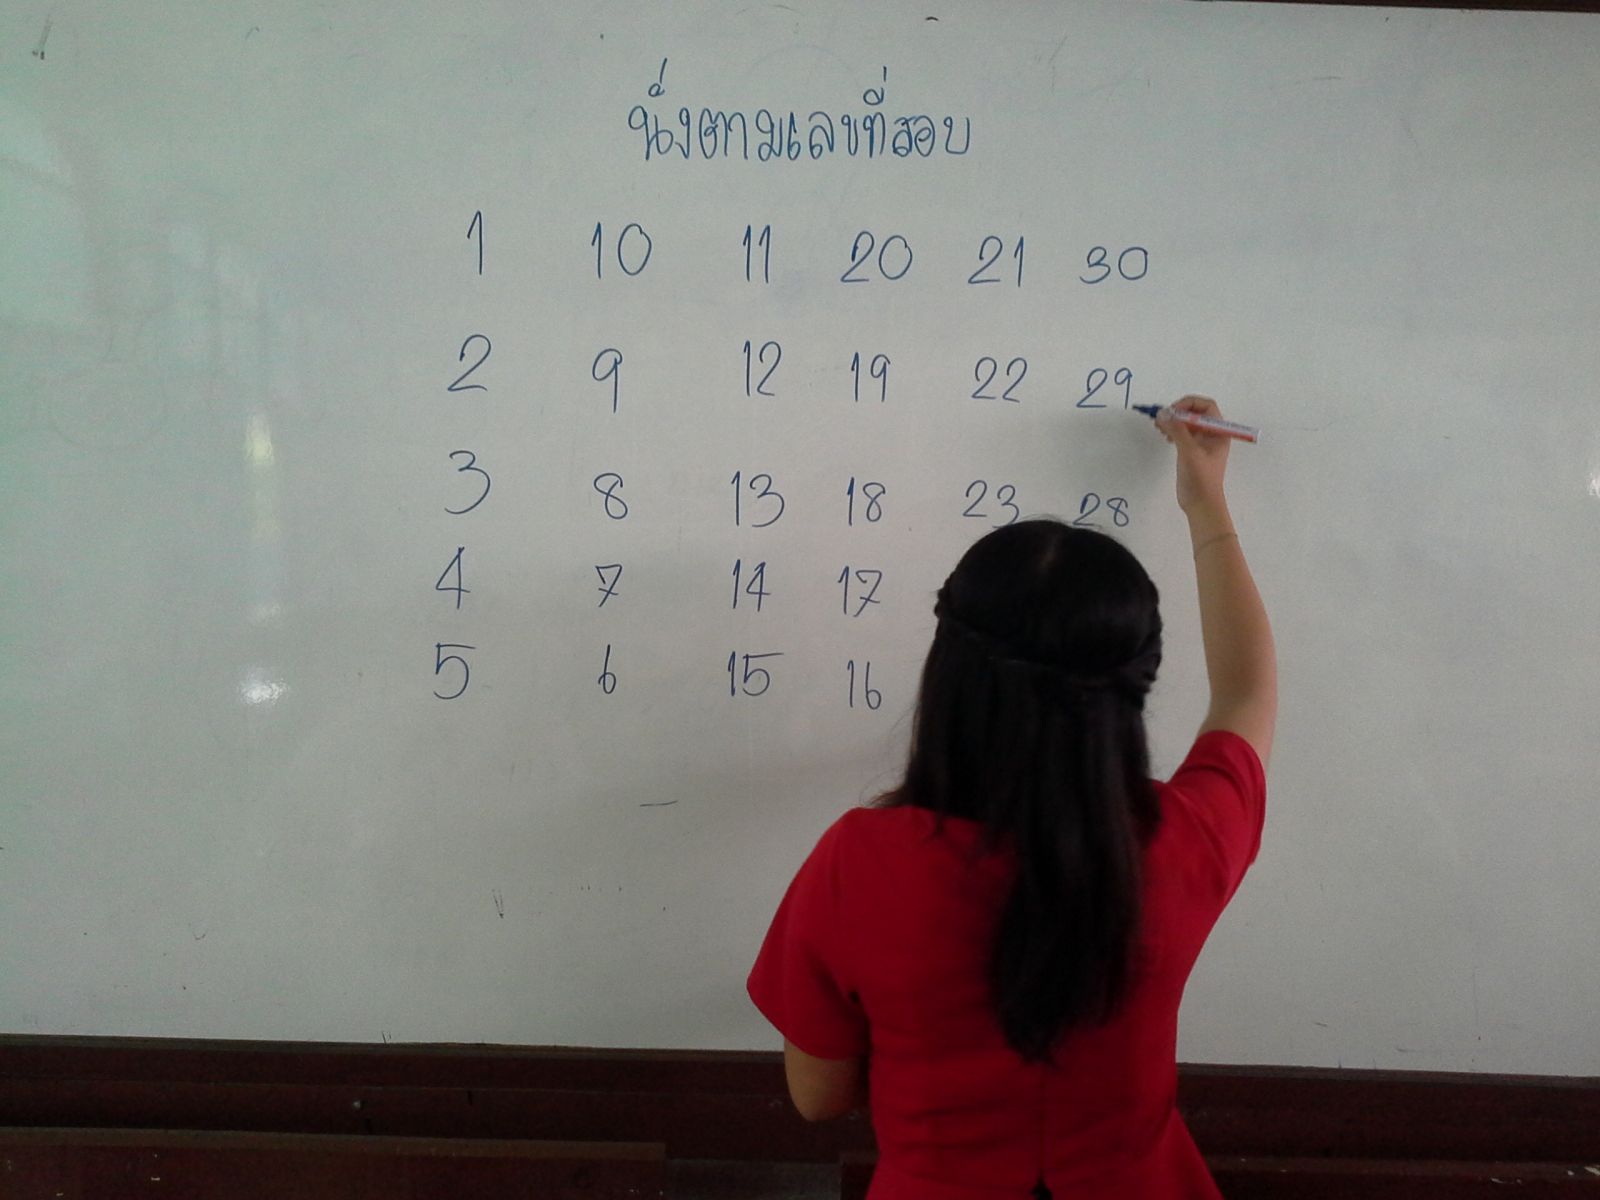 นั่งตามเลขที่สอบ
1 10 11 20 21 30
2 9 12 19 22 29
3 8 13 18 23 28
4 7 14 17
5 6 15 16